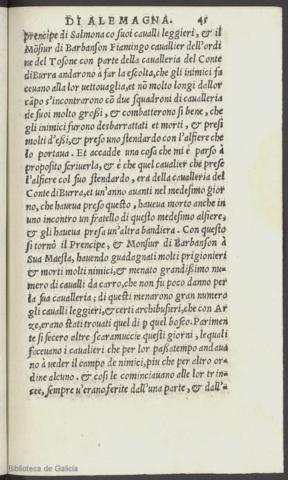 DI ALEMAGNA. 45
prencipe di Salmona co suoi cavalli leggieri, & il
Mõsiur di Barbanson Fiamingo cauallier dell'ordi
ne del Tosone con parte della caualleria del Conte
di Burra andarono à far la scolta, che gli inimici fa
ceuano alla lor uettouaglia, et nõ molto longi dallor
cãpo s'incontrarono cõ due squadroni di caualleria
de suoi molto grossi, & combatterono si bene, che
gli inimici furono desbarrattati et morti, & presi
molti d'essi, & preso uno stendardo con l'alfiere che
lo portaua. Et accadde una cosa che mi è parso à
proposito scriuerla, & è che quel caualier che prese
l'alfiere col suo stendardo, era della caualleria del
Conte di Burra, et un'anno auanti nel medesimo gior
no, che haueua preso questo, haueua morto anche in
uno incontro un fratello di questo medesimo alfiere,
& gli haueua presa un'altra bandiera. Con questo
si tornò il Prencipe, & Monsiur di Barbansòn à
Sua Maesta, hauendo guadagnati molti prigionieri
& morti molti nimici, & menato grandissimo nu-
mero di caualli da carro, che non fu poco danno per
la sua caualleria; di questi menarono gran numero
gli caualli leggieri, & certi archibusieri, che con Ar
ze, erano stati trouati quel di p quel bosco. Parimen
te si fecero altre scaramuccie questi giorni, le quali
faceuano i caualieri che per lor passatempo andaua
no à ueder il campo de nimici, piu che per altro or-
dine alcuno. & cosi le cominciauano alle lor trin-
cee, sempre u'erano ferite dall'una parte, & dall'a-
Biblioteca de Galicia